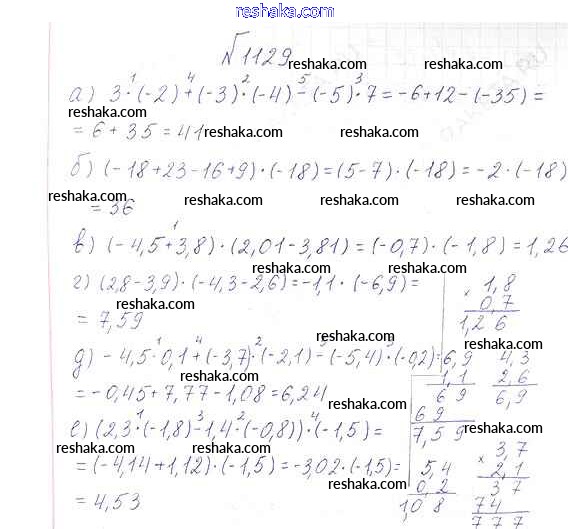 reshaka.com
№1129
reshaka.com
а) 3·(-2)+(-3)·(-4)-(-5)·7=-6+12-(-35)=
1 4 2 5 3
reshaka.com reshaka.com
=6+35=41
reshaka.com reshaka.com
б) (-18+23-16+9)·(-18)=(5-7)·(-18)=-2·(-18)
reshaka.com reshaka.com reshaka.com reshaka.com
=36
в) (-4,5+3,8)·(2,01-3,81)=(-0,7)·(-1,8)=1,26
1
reshaka.com reshaka.com
г) (2,8-3,9)·(-4,3-2,6)=-1,1·(-6,9)=
reshaka.com reshaka.com
=7,59
× 1,8
0,7
1,26
reshaka.com reshaka.com
д) -4,5·0,1+(-3,7)·(-2,1)-(-5,4)·(-0,2)=
1 4 2 5 3
reshaka.com reshaka.com
=-0,45+7,77-1,08=6,24
6,9
1,1
69
69
7,59
4,3
2,6
6,9
reshaka.com reshaka.com
е) (2,3·(-1,8)-1,4·(-0,8))·(-1,5)=
1 3 2 4
reshaka.com reshaka.com reshaka.com
=(-4,14+1,12)·(-1,5)=-3,02·(-1,5)=
reshaka.com reshaka.com
=4,53
5,4
0,2
1,08
× 3,7
2,1
37
74
777
reshaka.com reshaka.com
reshaka.com